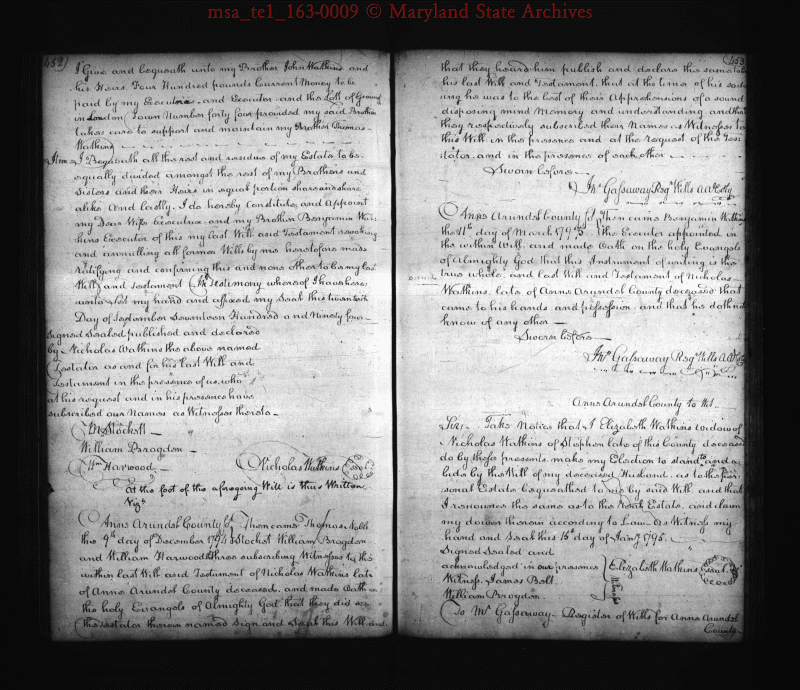 msa_te1_163-0009 © Maryland State Archives
452
I Give and bequeath unto my Brother John Watkins and
his Heirs Four Hundred pounds Current Money to be
paid by my Executrix and Executor and the Lott of Ground
in London Town Number forty four provided my said Brother
takes care to support and maintain my Brother Thomas
Watkins
Item I Bequeath all the rest and residue of my Estate to be
equally divided amongst the rest of my Brothers and
Sisters and their Heirs in equal portion share and share
alike And Lastly I do hereby Constitute and Appoint
my Dear Wife Executrix and my Brother Benjamin Wat-
kins Executor of this my last Will and Testament revoking
and annulling all former Wills by me heretofore made
ratifying and confirming this and none other to be my last
Will and Testament In Testimony whereof I have here
unto set my hand and affixed my Seal this twentieth
Day of September Seventeen Hundred and Ninety four
Signed Sealed published and declared
by Nicholas Watkins the above named
Testator as and for his last Will and
Testament in the presence of us who
at his request and in his presence have
subscribed our Names as Witnesses thereto
Stockett
William Brogden
Wm Harwood
Nicholas Watkins
At the foot of the aforegoing Will is thus Written
Vizt
Anne Arundel County Sct Then came Thomas Noble
this 9th day of December 1794 Stocket William Brogden
and William Harwood three subscribing Witnesses to the
within last Will and Testament of Nicholas Watkins late
of Anne Arundel County deceased and made Oath on
the holy Evangels of Almighty God that they did see
the testator therein named Sign and Seal this Will and
453
that they heard him publish and declare the same to be
his last Will and Testament that at the time of his so do
ing he was to the best of their Apprehensions of a sound
disposing mind Memory and understanding and that
they respectively subscribed their Names as Witness to
this Will in the presence and at the request of the Tes-
tator and in the presence of each other
Sworn before
Jno Gassaway Regr Wills AA Coty
Anne Arundel County Sct Then came Benjamin Watkins
the 11th day of March 1795 the Executor appointed in
the within Will and made Oath on the holy Evangels
of Almighty God that this Instrument of writing is the
true whole and last Will and Testament of Nicholas
Watkins late of Anne Arundel County deceased that
came to his hands and possession and that he doth not
know of any other
Sworn before
Jno Gassaway Regr Wills AA Coty
Anne Arundel County to Wit
Sir Take Notice that I Elizabeth Watkins widow of
Nicholas Watkins of Stephen late of this County deceased
do by these presents make my Election to stand to and a
bide by the Will of my deceased Husband as to the Per-
sonal Estate bequeathed to me by said Will and that
I renounce the same as to the Real Estate, and claim
my dower therein according to Law As Witness my
hand and Seal this 15th day of Jany 1795
Signed Sealed and
acknowledged in our presence
Witness James Bolt
William Brogden
Elizabeth Watkins
To Mr Gassaway Register of Wills for Anne Arundel
County